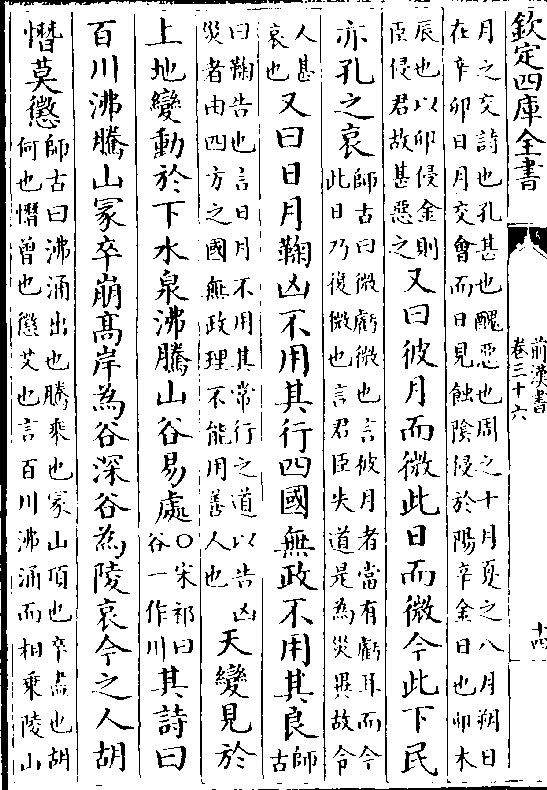 欽定四庫全書
前漢書
卷三十六
十四
月之交詩也孔甚也醜惡也周之十月夏之八月朔日
在辛卯日月交會而日見蝕陰侵於陽辛金日也卯木
辰也以卯侵金則
臣侵君故甚惡之
又曰彼月而微此日而微今此下民
亦孔之哀
師古曰微虧微也言彼月者當有虧耳而今
此日乃復微也言君臣失道是為災異故令
人甚
哀也
又曰日月鞠凶不用其行四國無政不用其良
師古
曰鞠告也言日月不用其常行之道以告凶
災者由四方之國無政理不能用善人也
天變見於
上地變動於下水泉沸騰山谷易處
○宋祁曰
谷一作川
其詩曰
百川沸騰山冢卒崩高岸為谷深谷為陵哀今之人胡
憯莫懲
師古曰沸涌出也騰乘也冢山頂也卒盡也胡
何也憯曾也懲艾也言百川沸涌而相乗陵山